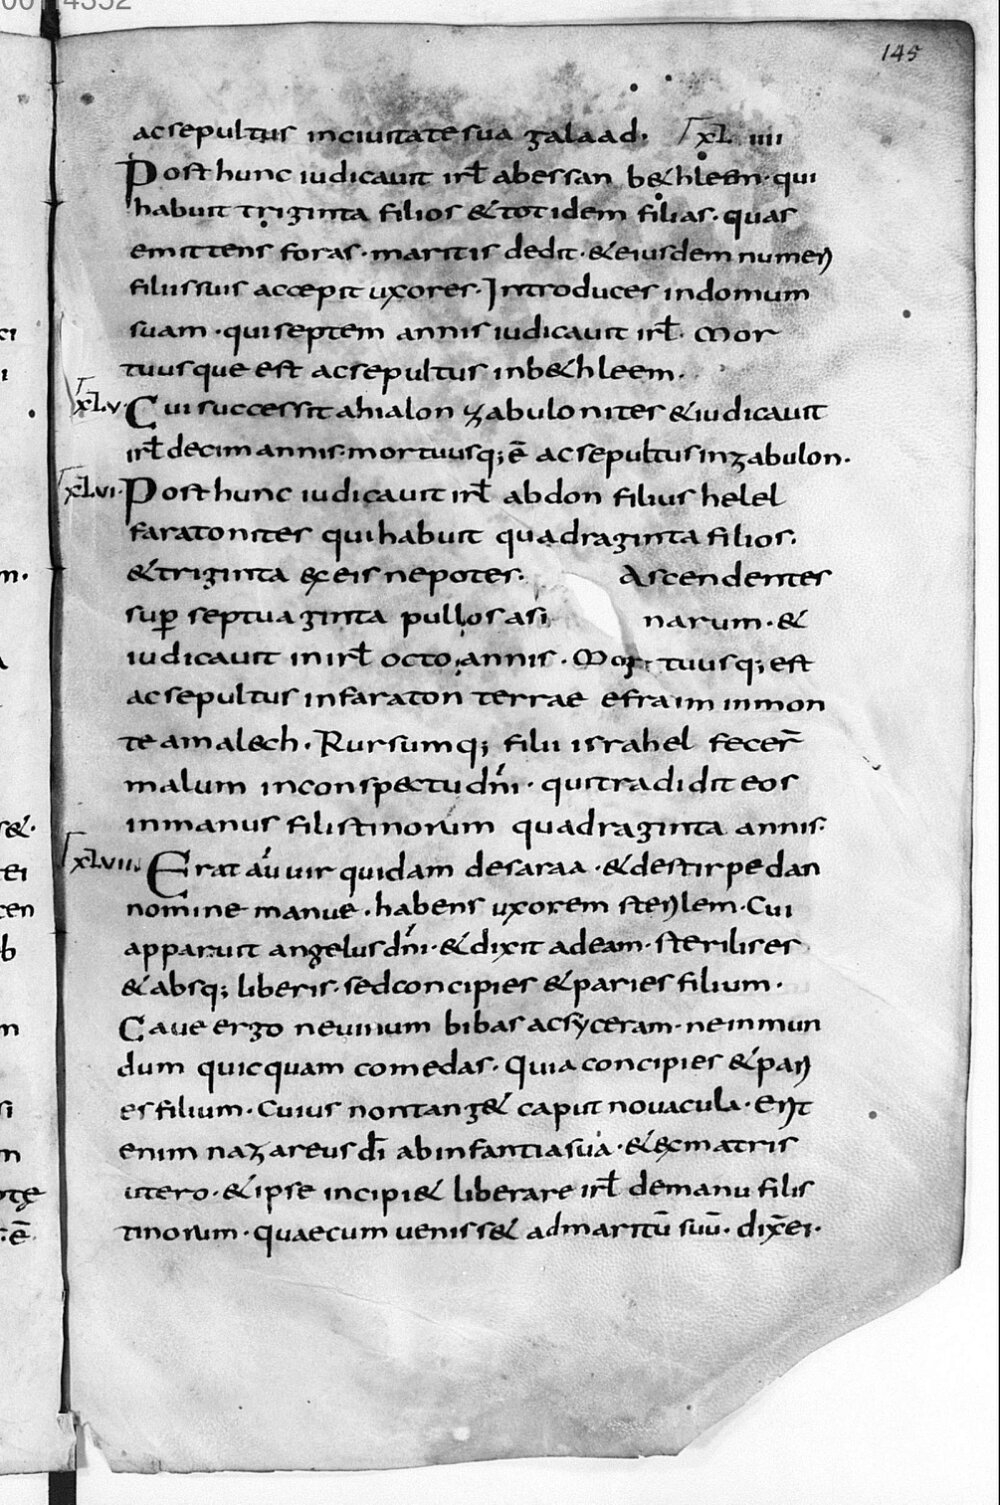 145
ac sepultus in ciuitate sua galaad. XLIIII
Post hunc iudicauit irl̄ abessan bethleem · qui
habuit triginta filios & totidem filias · quas
emittens foras · maritis dedit · & eiusdem numeri
filiis suis accepit uxores · Introduces in domum
suam · qui septem annis iudicauit irl̄ · Mor
tuusque est ac sepultus in b&hleem.
XLV · Cui successit ahialon zabulonites & iudicauit
irl̄ decim annis · mortuusq; ē ac sepultus in zabulon.
XLVI · Post hunc iudicauit irl̄ abdon filius helel
faratonites qui habuit quadraginta filios.
& triginta ex eis nepotes. Ascendentes
sup̄ septuaginta pullos asi narum · &
iudicauit in irl̄ octo annis · Mor tuusq; est
ac sepultus in faraton terrae efraim in mon
te amalech · Rursumq; filii israhel fecer̄
malum in conspectu dn̄i · qui tradidit eos
in manus filistinorum quadraginta annis.
XLVII. Erat aū uir quidam de saraa · & de stirpe dan
nomine manue · habens uxorem sterilem · Cui
apparuit angelus dn̄i · & dixit ad eam · sterilis es
& absq; liberis · sed concipies & paries filium ·
Caue ergo ne uinum bibas ac syceram · ne inmun
dum quicquam comedas · Quia concipies & pari
es filium · Cuius non tang& caput nouacula · Erit
enim nazareus dī ab infantia sua · & ex matris
utero · & ipse incipi& liberare irl̄ de manu filis
tinorum · quae cum ueniss& ad maritū suū · dix̄ ei ·